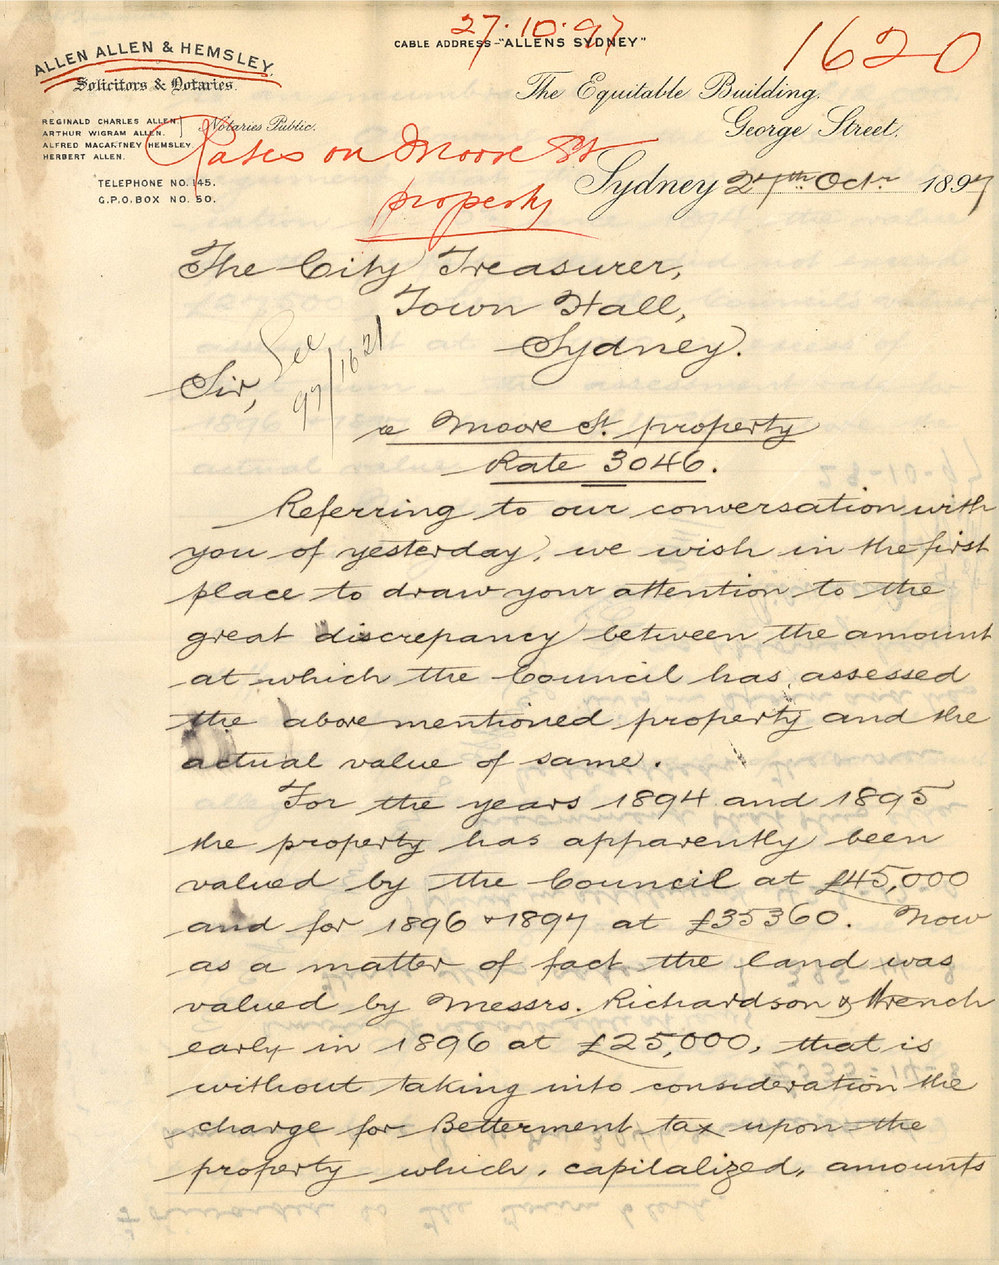 27.10.97
CABLE ADDRESS-"ALLENS SYDNEY"
1620
ALLEN ALLEN & HEMSLEY.
Solicitors & Notaries.
The Equitable Building.
George Street.
REGINALD CHARLES ALLEN.
ARTHUR WIGRAM ALLEN.
Notaries Public.
ALFRED MACARTNEY HEMSLEY.
HERBERT ALLEN.
TELEPHONE NO. 145.
G.P.O. BOX NO. 50.
Rates on Moore St
property
Sydney 27th Octr 1897
The City Treasurer,
Town Hall,
Sydney.
See
97/1621
Sir,
re Moore St. property
Rate 3046.
Referring to our conversation with
you of yesterday, we wish in the first
place to draw your attention to the
great discrepancy between the amount
at which the Council has assessed
the abovementioned property and the
actual value of same.
For the years 1894 and 1895
the property has apparently been
valued by the Council at £45,000
and for 1896 & 1897 at £35360. Now
as a matter of fact the land was
valued by Messrs. Richardson & Wrench
early in 1896 at £25,000, that is
without taking into consideration the
charge for Betterment tax upon the
property which, capitalized, amounts